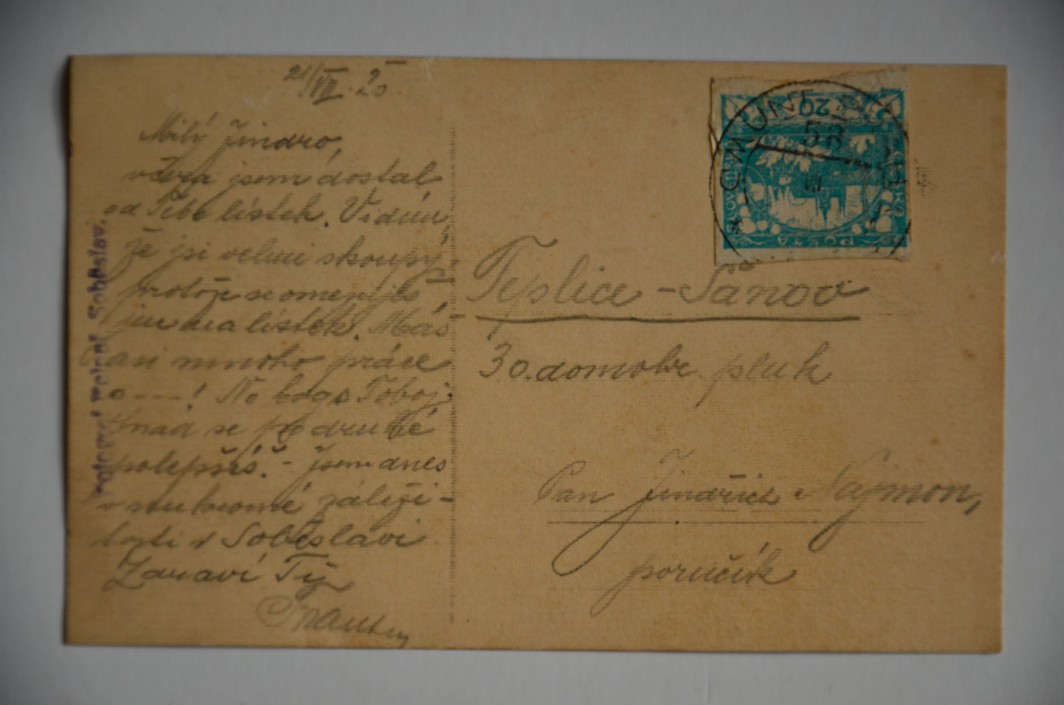 21/VII 20
Milý Jindro,
včera jsem dostal
od Tebe lístek. Vidím,
že jsi velmi skoupý,
protože se omezuješ
na lístek. Máš
asi mnoho práce
a ---! No bogo Toboj.
Snad se po druhé
polepšíš. - Jsem dnes
v soukromé záleži-
tosti v Soběslavi.
Zdraví Tě
Teplice - Šanov
30. domobr. pluk
Pan Jindřich Najmon,
poručík
Soběslav.
POŠTA
20